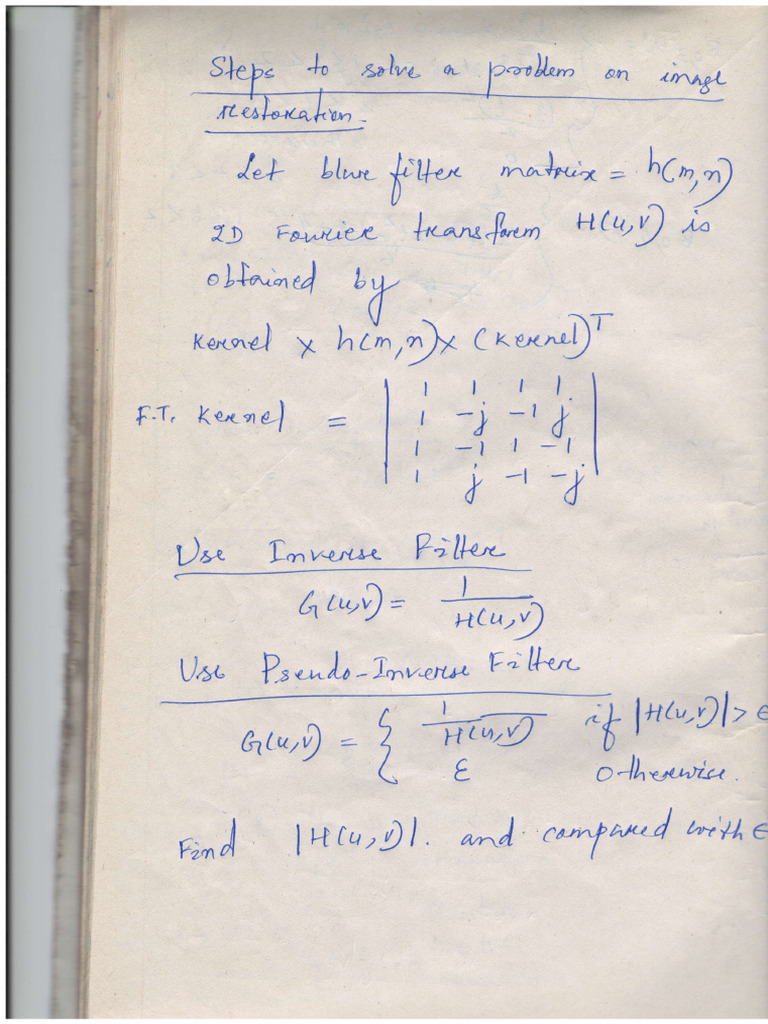 Steps to solve a problem on image
restoration.
Let blur filter matrix = h(m,n)
2D Fourier transform H(u,v) is
obtained by
Kernel x h(m,n) x (Kernel)^T
F.T. Kernel = | 1 1 1 1 |
| 1 -j -1 j |
| 1 -1 1 -1 |
| 1 j -1 -j |
Use Inverse Filter
G(u,v) = 1 / H(u,v)
Use Pseudo-Inverse Filter
G(u,v) = { 1 / H(u,v) if |H(u,v)| > ε
ε otherwise.
Find |H(u,v)|. and compared with ε